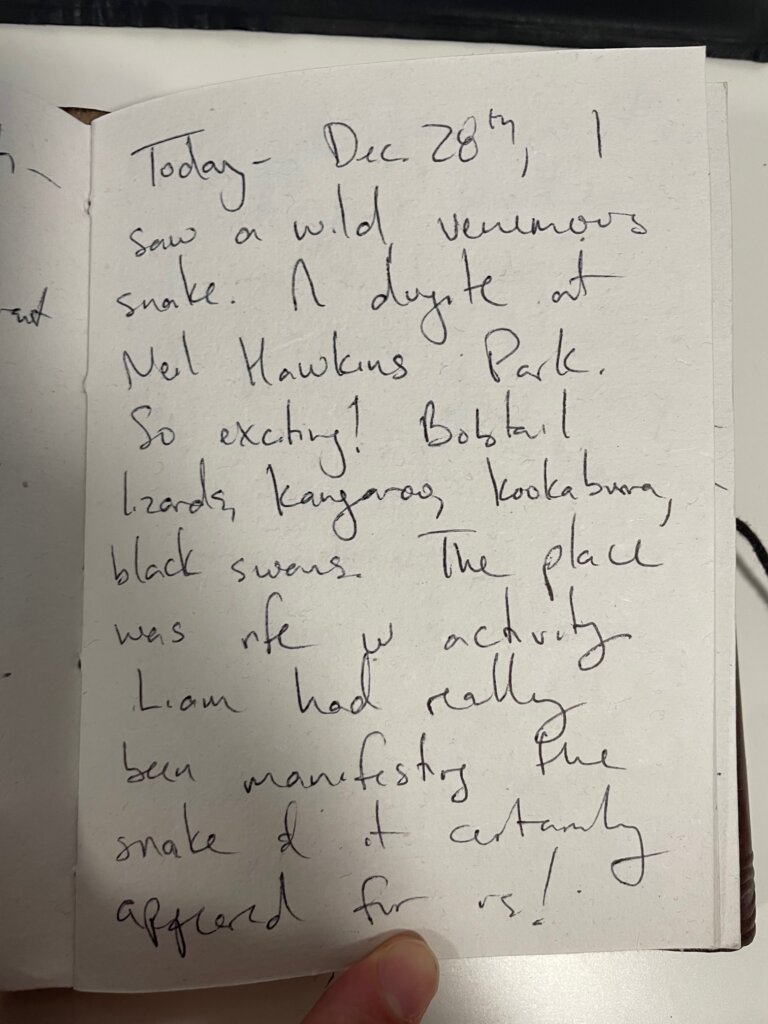 Today- Dec. 28th, I
saw a wild venemous
snake. A dugite at
Neil Hawkins Park.
So exciting! Bobtail
lizards, kangaroos, kookaburra,
black swans. The place
was rife w activity
Liam had really
been manifesting the
snake & it certainly
appeared for us!